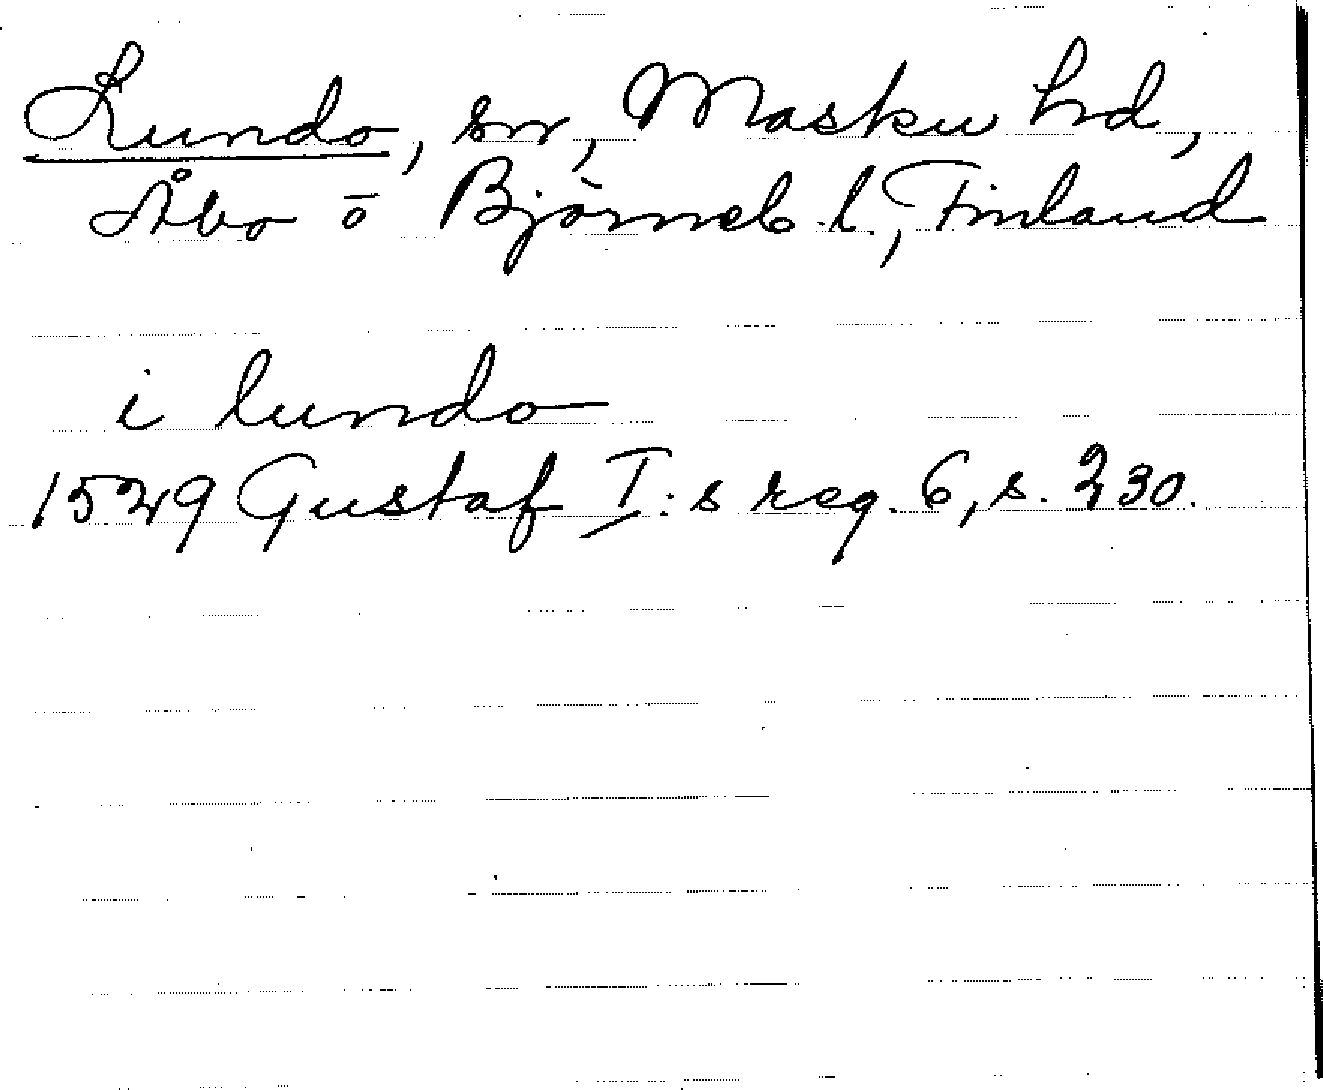 Lundo, sn, Masku hd,
Åbo o Björneb. l., Finland
i lundo
1529 Gustaf I:s reg. 6, s. 230.